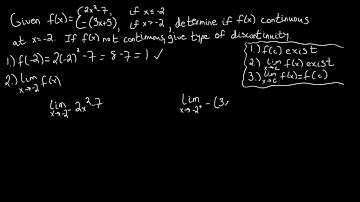 Given f(x)={2x²-7, if x≤-2
-(3x+5), if x>-2, determine if f(x) continuous
at x=-2. If f(x) not continuous, give type of discontinuity.
1.) f(c) exist
2.) lim x→c f(x) exist
3.) lim x→c f(x)=f(c)
1.) f(-2)=2(-2)²-7=8-7=1 ✓
2.) lim x→-2 f(x)
lim x→-2⁻ 2x²-7
lim x→-2⁺ -(3x